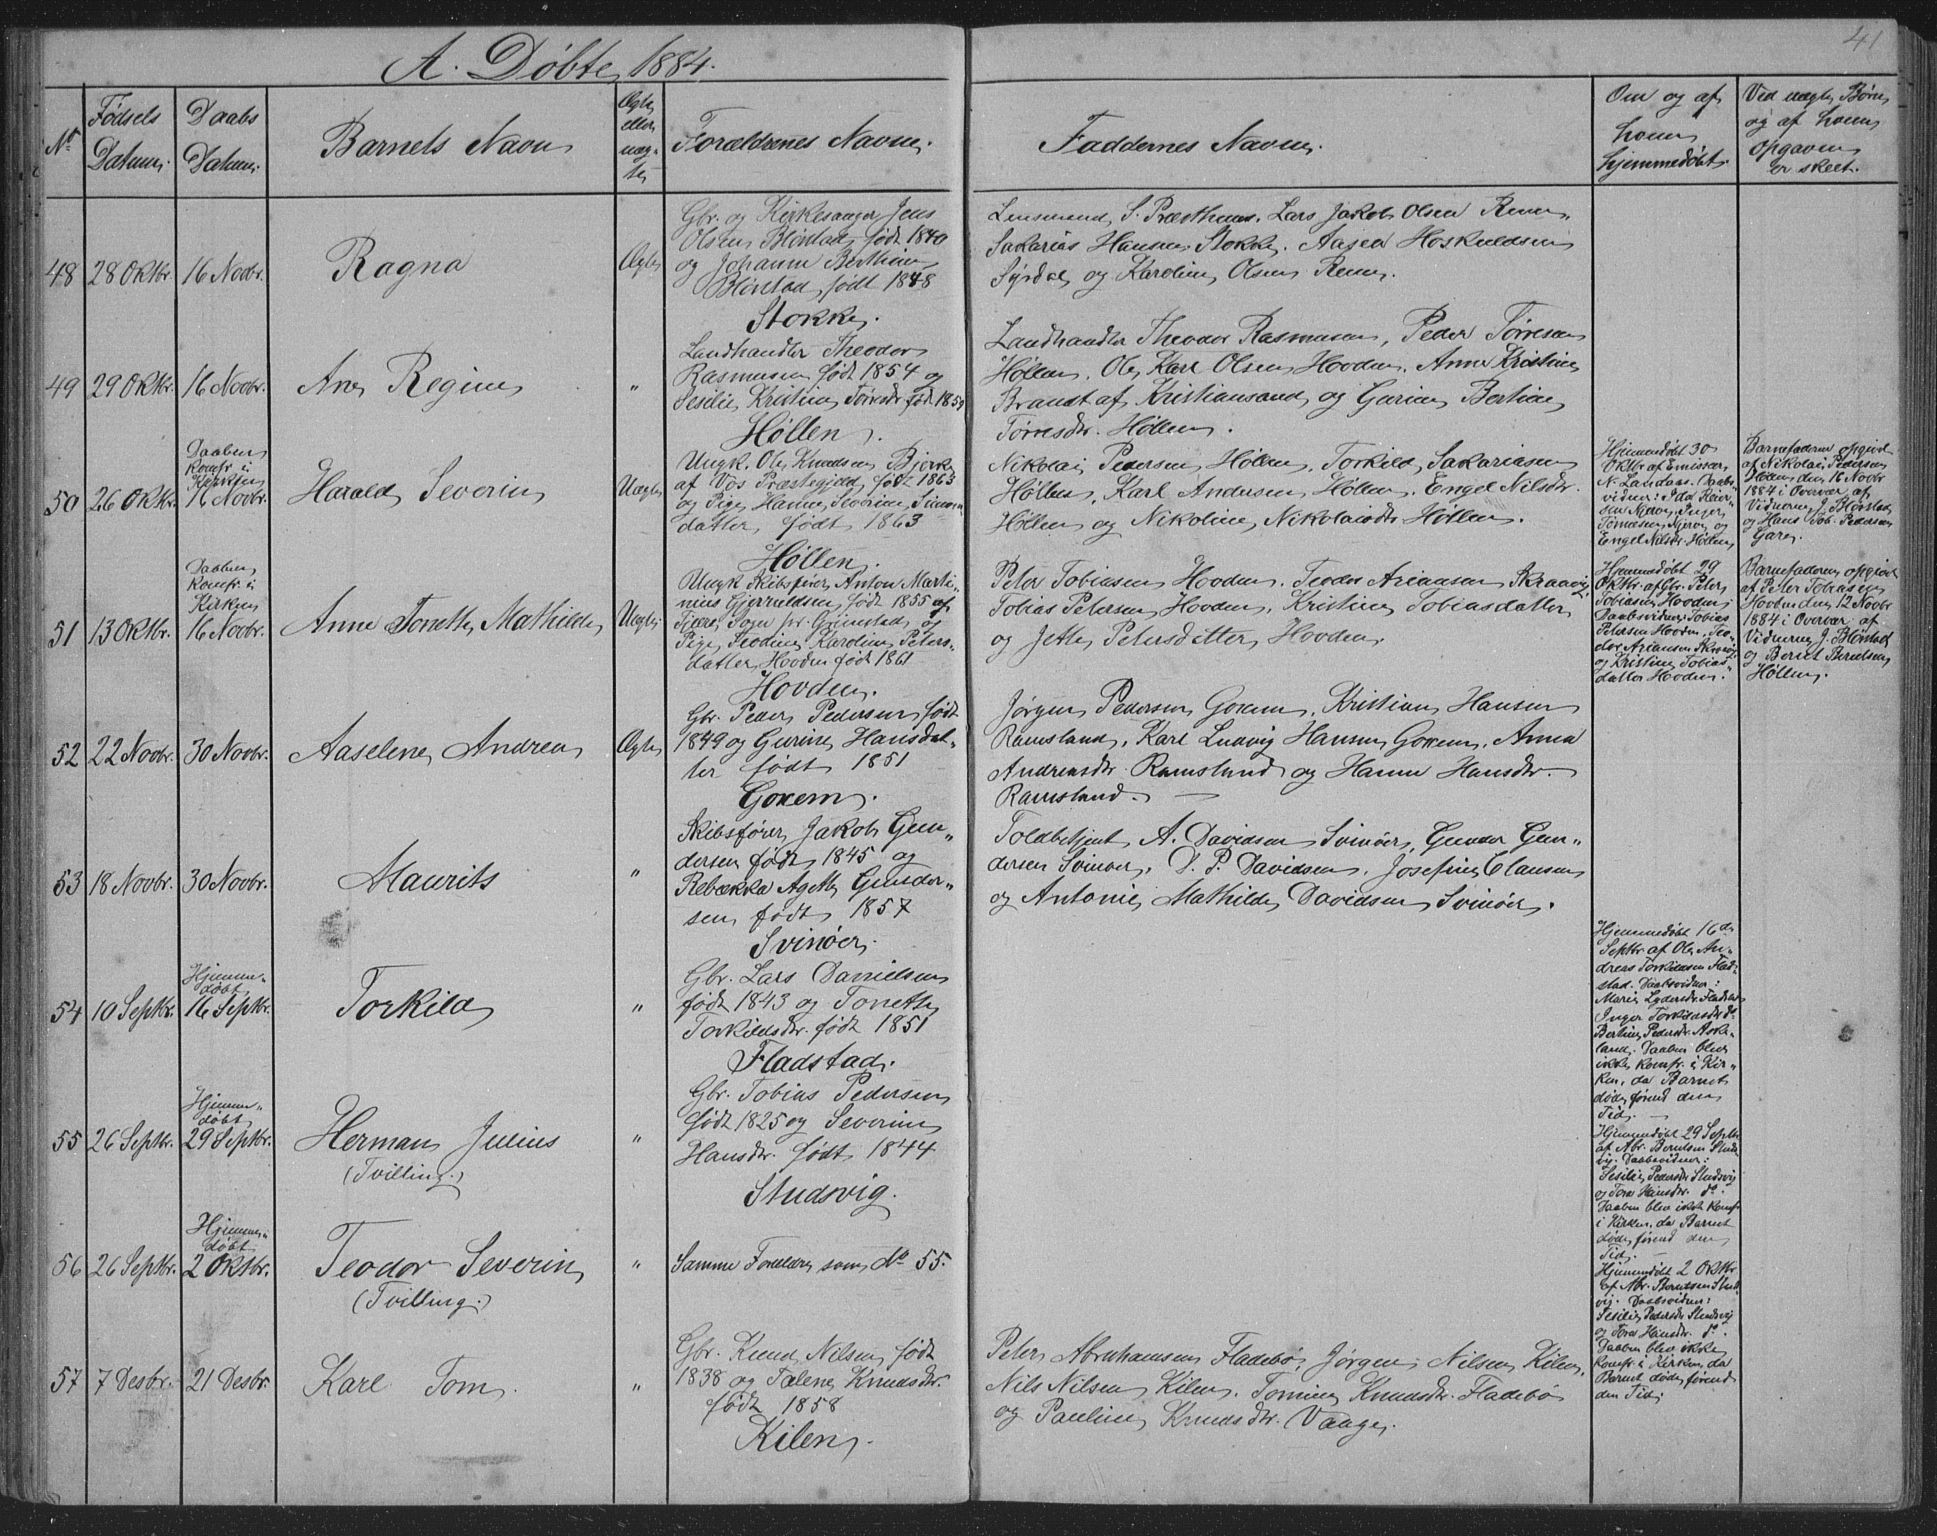 41
A. Døbte 1884.
Nr.
Fødsels Datum.
Daabs Datum.
Barnets Navn
Ægte eller uægte
Forældrenes Navne.
Faddernes Navne.
Om og af hvem hjemmedøbt.
Ved uægte Børn og af hvem Opgaven er skeet.
48
28 Oktbr.
16 Novbr.
Ragna
Ægte
Gbr. og Kirkesanger Jens
Olsen Blörstad født 1840
og Johanne Bertine
Blörstad født 1848
Stokke.
Lensmand S. Præsthuus. Lars Jakob Olsen
Sakarias Hansen Stokke. Aasea Hoskuldsen
Syrdal og Karoline Olsen
49
29 Oktbr.
16 Novbr.
Ane Regine
"
Landhandler Theodor
Rasmussen født 1854 og
Sesilie Kristine Törresdr. født 1859
Höllen.
Landhandler Theodor Rasmussen, Peder Törresen
Höllen. Ole Karl Olsen Hovden. Anne Kristine
Brandt af Kristiansand og Gurine Bertine
Törresdr. Höllen.
50
26 Oktbr.
Daaben
Komfr. i
Kirken
16 Novbr.
Harald Severin
Uægte
Ungk. Ole Knudsen Bjork
af Vos Præstegjeld født 1863
og Pige Hanne Severine Simons
datter født 1863
Höllen.
Nikolai Pedersen Höllen, Torkild Sakariasen
Höllen, Karl Andersen Höllen. Engel Nilsdr.
Höllen og Nikoline Nikolaisdtr. Höllen.
Hjemmedøbt 30
Oktbr af Emissær
N. Landaas. Daabs
vidner: Ida Reier
sen Njerve, Inger
Tönnesen Njerve og
Engel Nilsdr. Höllen
Barnefaderen opgivet
af Nikolai Pedersen
Höllen den 16 Novbr
1884 i Overvær af
Vidnerne J. Blörstad
og Hans Tob. Pedersen
Gare.
51
13 Oktbr.
Daaben
Komfr. i
Kirken
16 Novbr.
Anne Tonette Mathilde
Uægte
Ungk. Skibsfører Anton Marti-
nius Gjerruldsen født 1855 af
Fjære Sogn pr. Grimstad og
Pige Teodine Karoline Peters-
datter Hovden født 1861
Hovden.
Peter Tobiasen Hovden. Teodor Ariansen
Tobias Petersen Hovden. Kristine Tobiasdatter
og Jette Petersdatter Hovden.
Hjemmedøbt 29
Oktbr. af Gbr. Peter
Tobiasen Hovden.
Daabsvidner: Tobias
Petersen Hovden, Teo-
dor Ariansen
og Kristine Tobias-
datter Hovden.
Barnefaderen opgivet
af Peter Tobiasen
Hovden den 12 Novbr
1884 i Overvær af
Vidnerne J. Blörstad
og Bernt Berntsen
Höllen.
52
22 Novbr.
30 Novbr.
Aaselene Andrea
Ægte
Gbr. Peder Pedersen født
1849 og Gurine Hansdat-
ter født 1851
Goxem.
Jørgen Pedersen Goxem. Kristian Hansen
Ramsland. Karl Ludvig Hansen Goxem. Anna
Andreasdr. Ramsland og Hanne Hansdr.
Ramsland.
53
18 Novbr.
30 Novbr.
Maurits
"
Skibsfører Jakob Gun-
dersen født 1845 og
Rebekka Agethe Gunder-
sen født 1857
Svinöer.
Toldbetjent A. Davidsen Svinöer, Gunder Gun-
dersen Svinöer. D. P. Davidsen. Josefine Clausen
og Antonie Mathilde Davidsen Svinöer.
54
10 Septbr.
Hjemme-
døbt
16 Septbr.
Torkild
"
Gbr. Lars Danielsen
født 1843 og Tonette
Torkildsdr. født 1851
Fladstad.
Hjemmedøbt 16de
Septbr af Ole An-
dreas Torkildsen Flad-
stad. Daabsvidner:
Marie Lydersdr. Fladstad
Inger Torkildsdr do
Bertine Pedersdr. Aske-
land. Daaben blev
ikke Komfr. i Kir-
ken, da Barnet
døde førend den
Tid.
55
26 Septbr.
Hjemme-
døbt
29 Septbr.
Herman Julius
(Tvilling.)
"
Gbr. Tobias Pedersen
født 1825 og Severine
Hansdr. født 1844
Studsvig.
Hjemmedøbt 29 Septbr
af Abr. Berntsen Studs
vig. Daabsvidner:
Sesilie Pedersdr Studsvig
og Tora Hansdr. do.
Daaben blev ikke Komfr
i Kirken, da Barnet
døde førend den
Tid.
56
26 Septbr.
Hjemme-
døbt
2 Oktbr.
Teodor Severin
(Tvilling.)
"
Samme Forældre som No 55.
Hjemmedøbt 2 Oktbr
af Abr. Berntsen Stud
vig. Daabsvidner:
Sesilie Pedersdr Studsvig
og Tora Hansdr. do.
Daaben blev ikke
Komfr. i Kirken, da
Barnet døde førend
den Tid.
57
7 Desbr.
21 Desbr.
Karl Tom
"
Gbr. Knud Nilsen født
1838 og Talene Knudsdr.
født 1858
Kilen.
Peter Abrahamsen Fladebö, Jörgen Nilsen Kilen,
Nils Nilsen Kilen. Tomine Knudsdr. Fladebö
og Pauline Knudsdtr. Vaage.